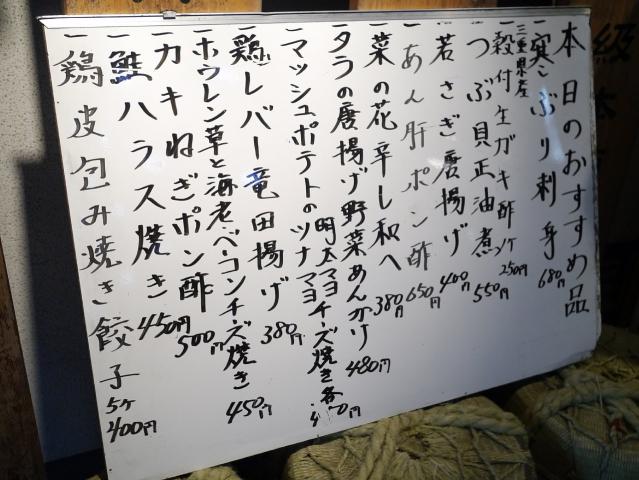 本日のおすすめ品
一寒ぶり刺身 680円
三重県産
一殻付生ガキ酢 1ケ250円
一つぶ貝正油煮 550円
一若さぎ唐揚げ 400円
一あん肝ポン酢 650円
一菜の花辛し和へ 380円
一タラの唐揚げ野菜あんかけ 480円
一マッシュポテトのツナマヨ
明太マヨ
チーズ焼き各
一鶏レバー竜田揚げ 380円
一ホウレン草と海老ベーコンチーズ焼き 450円
一カキねぎポン酢 500円
一鮭ハラス焼き 450円
一鶏皮包み焼き餃子 5ケ400円